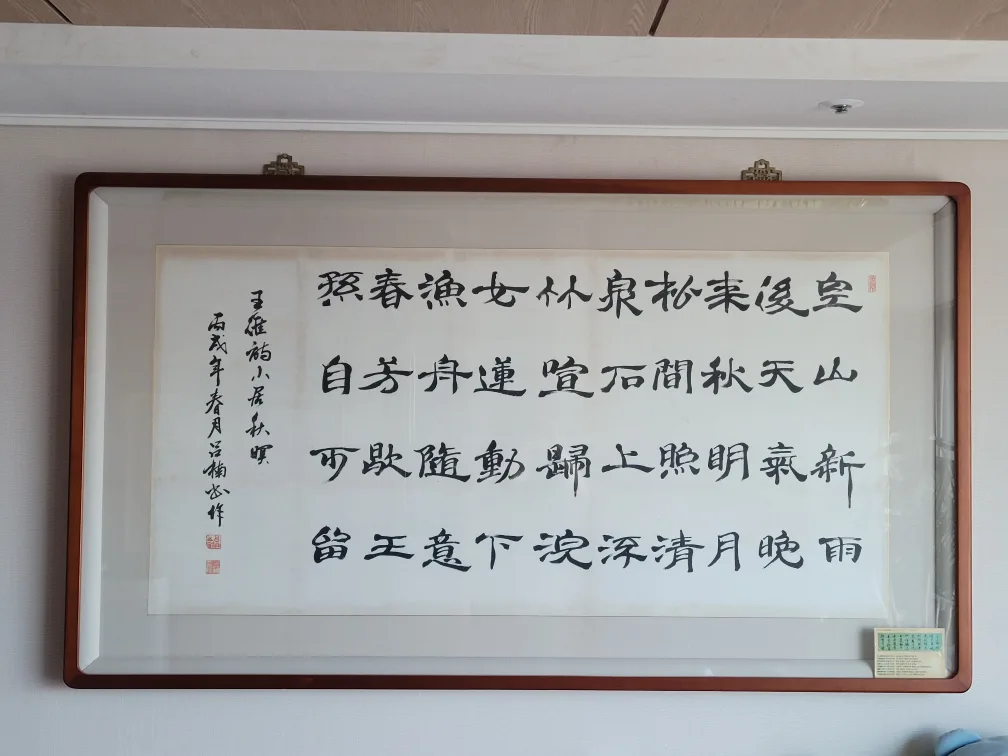 空山新雨
後天氣晚
來秋明月
松間照清
泉石上流
竹喧歸浣
女蓮動下
漁舟隨意
春芳歇王
孫自可留
王維詩山居秋暝
丙戌年春月吕楠书作